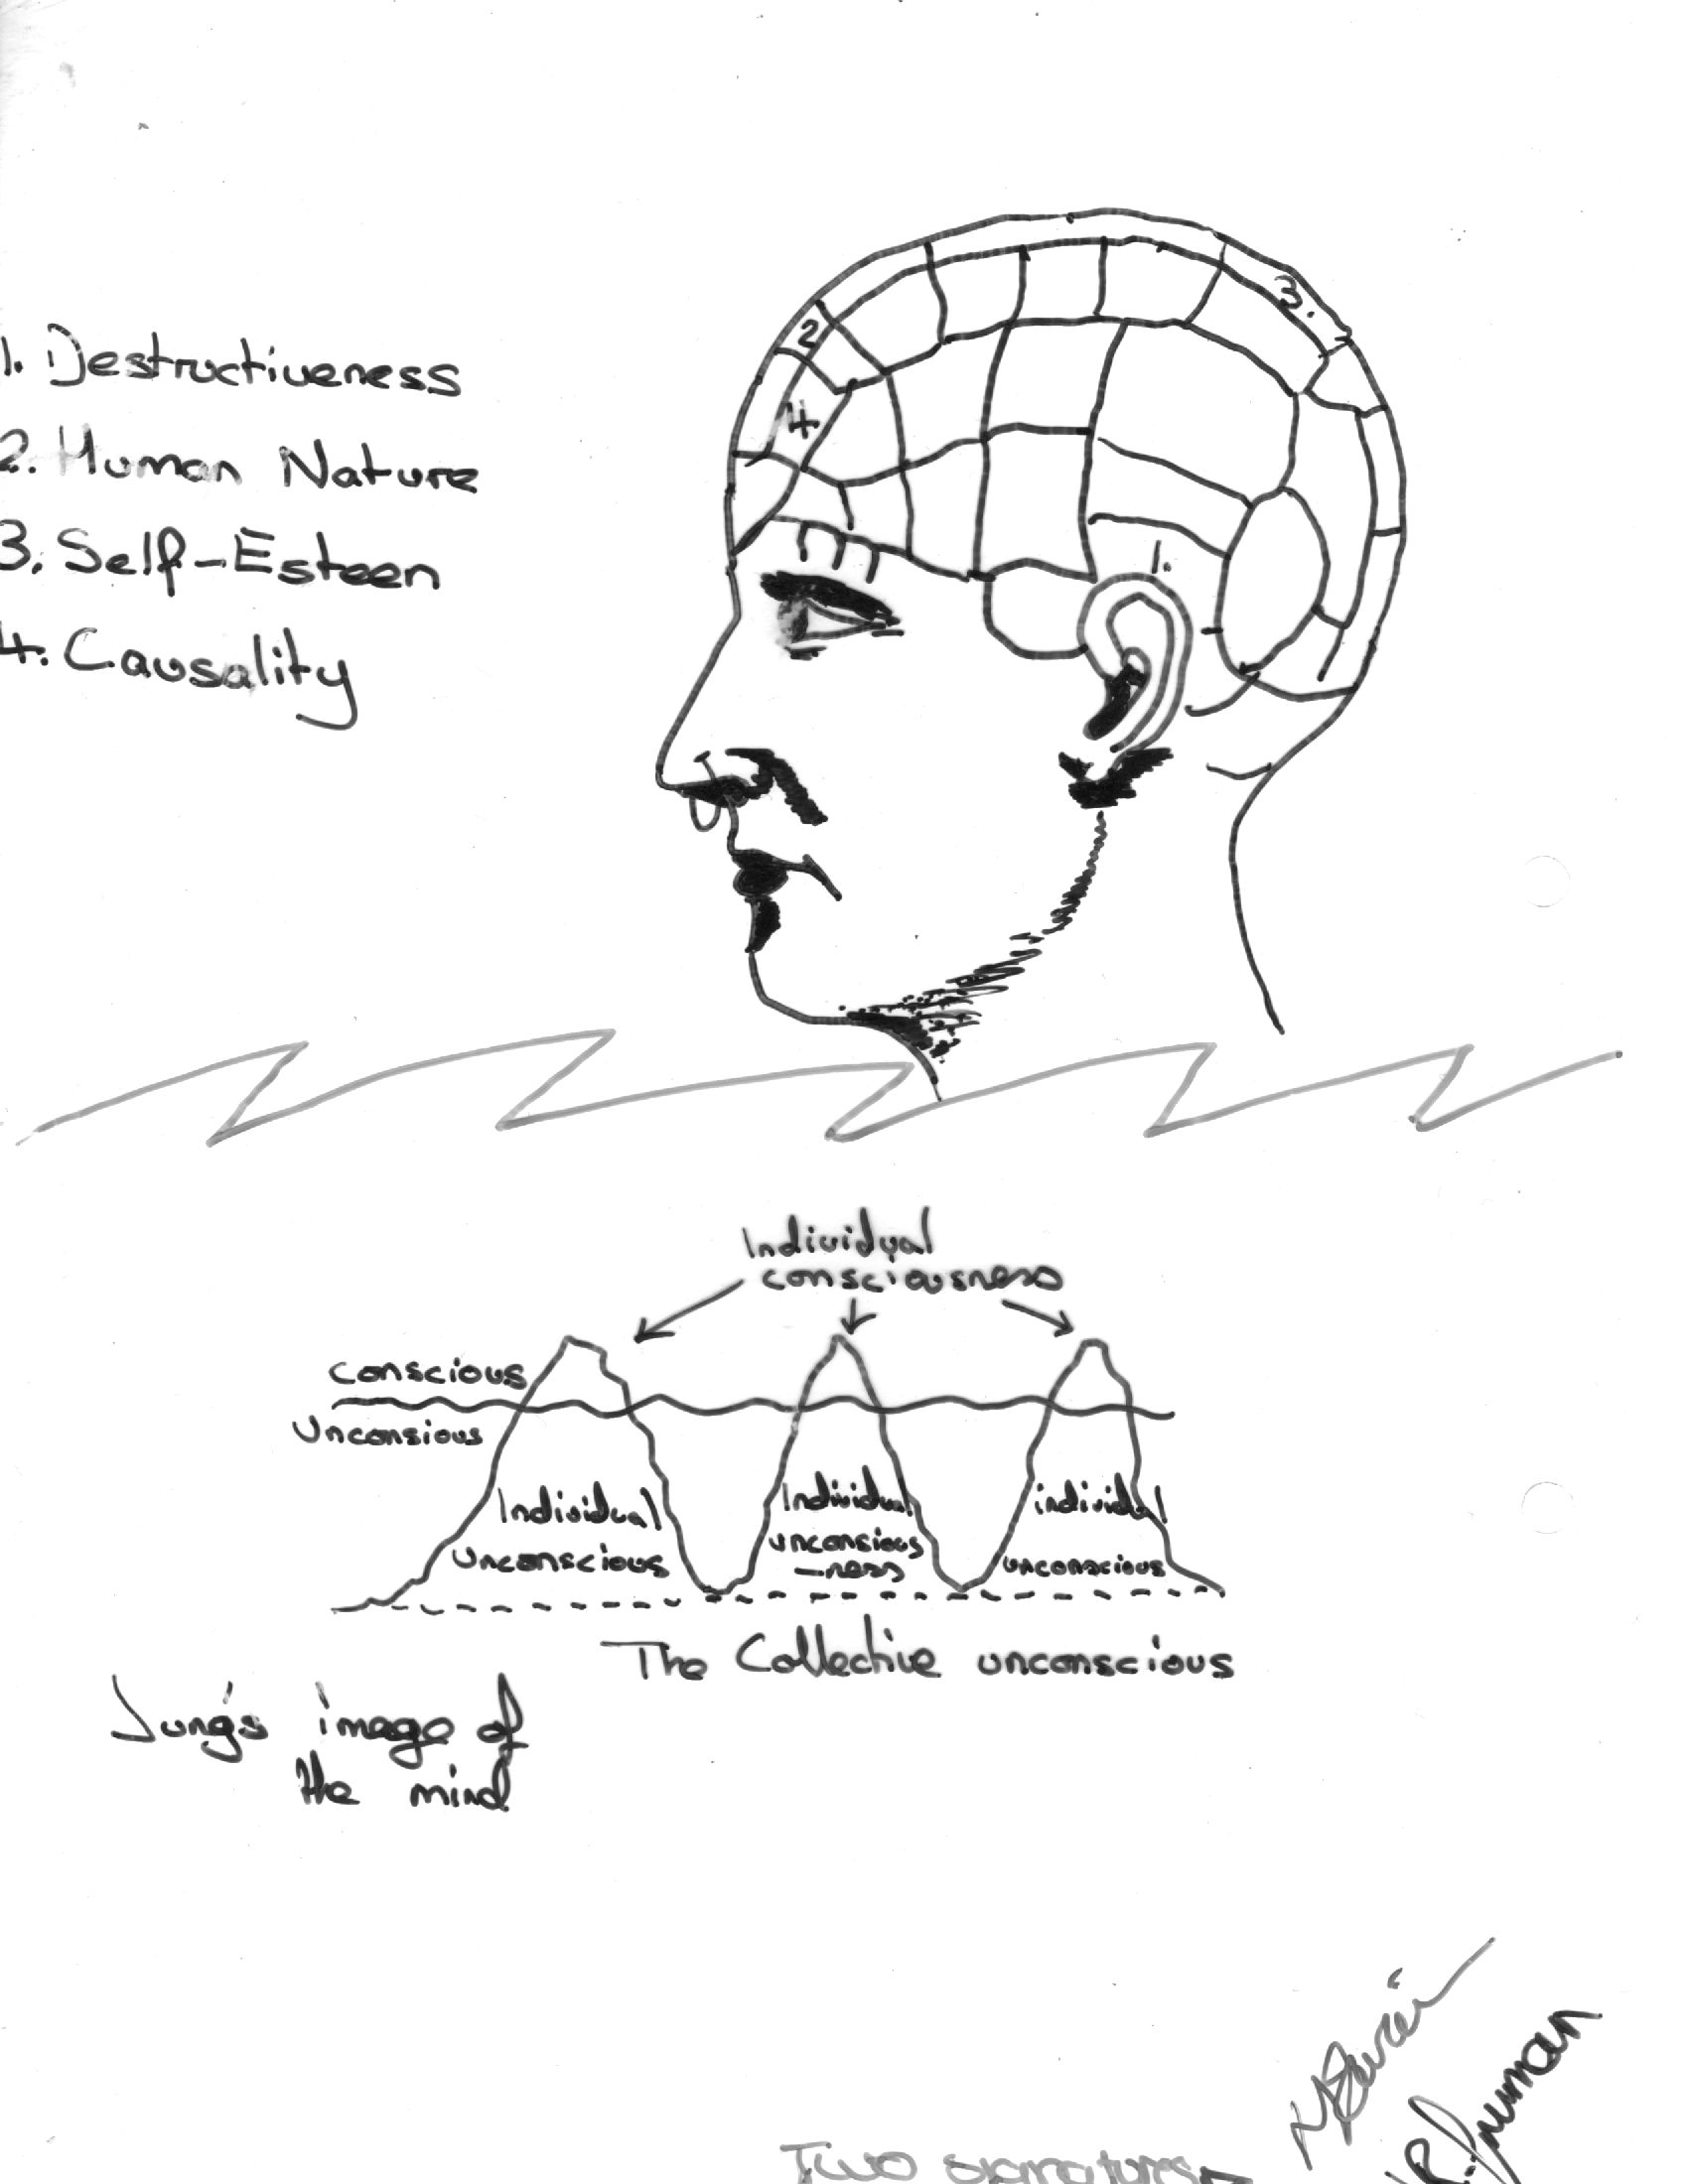 1. Destructiveness
2. Human Nature
3. Self-Esteen
4. Causality
2
3.
4
1.
Individual
consciousness
conscious
Unconsious
Individual
unconscious
Individual
unconsious
-ness
individual
unconscious
The Collective unconscious
Jung's image of
the mind
Two signatures